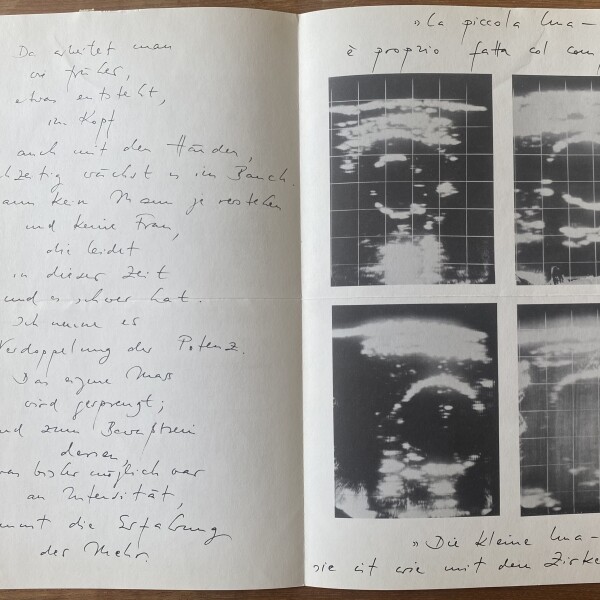 Da arbeitet man
wie früher,
etwas entsteht,
im Kopf
auch mit den Händen,
hzeitig wächst es im Bauch.
ann kein Mann je verstehen
und keine Frau,
die leidet
in dieser Zeit
und es schwer hat.
Ich nenne es
Verdoppelung der Potenz.
Das eigene Mass
wird gesprengt;
nd zum Bewußtsein
dessen,
was bisher möglich war
an Intensität,
ommt die Erfahrung
des Mehr.
»La piccola Ima–
è proprio fatta col com
»Die kleine Ima–
sie ist wie mit dem Zirke